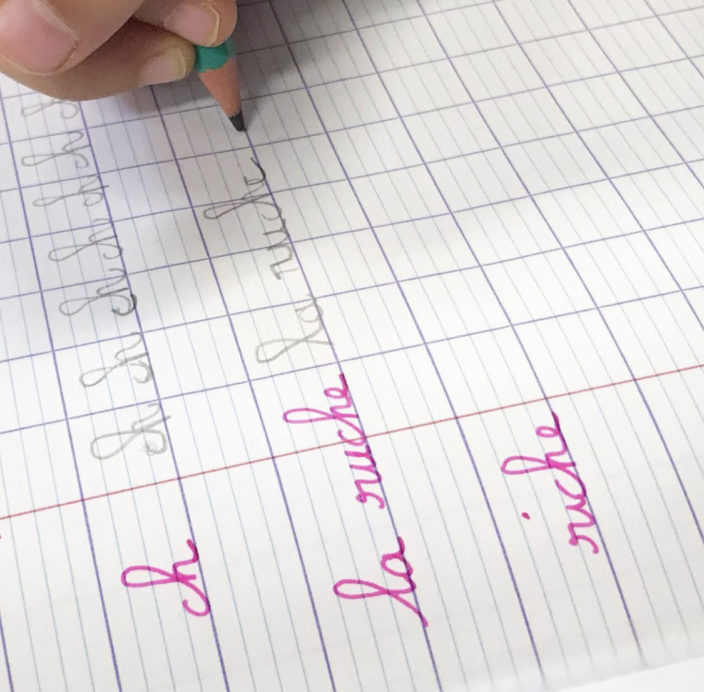 ch ch ch ch ch ch ch
la ruche la ruche
riche